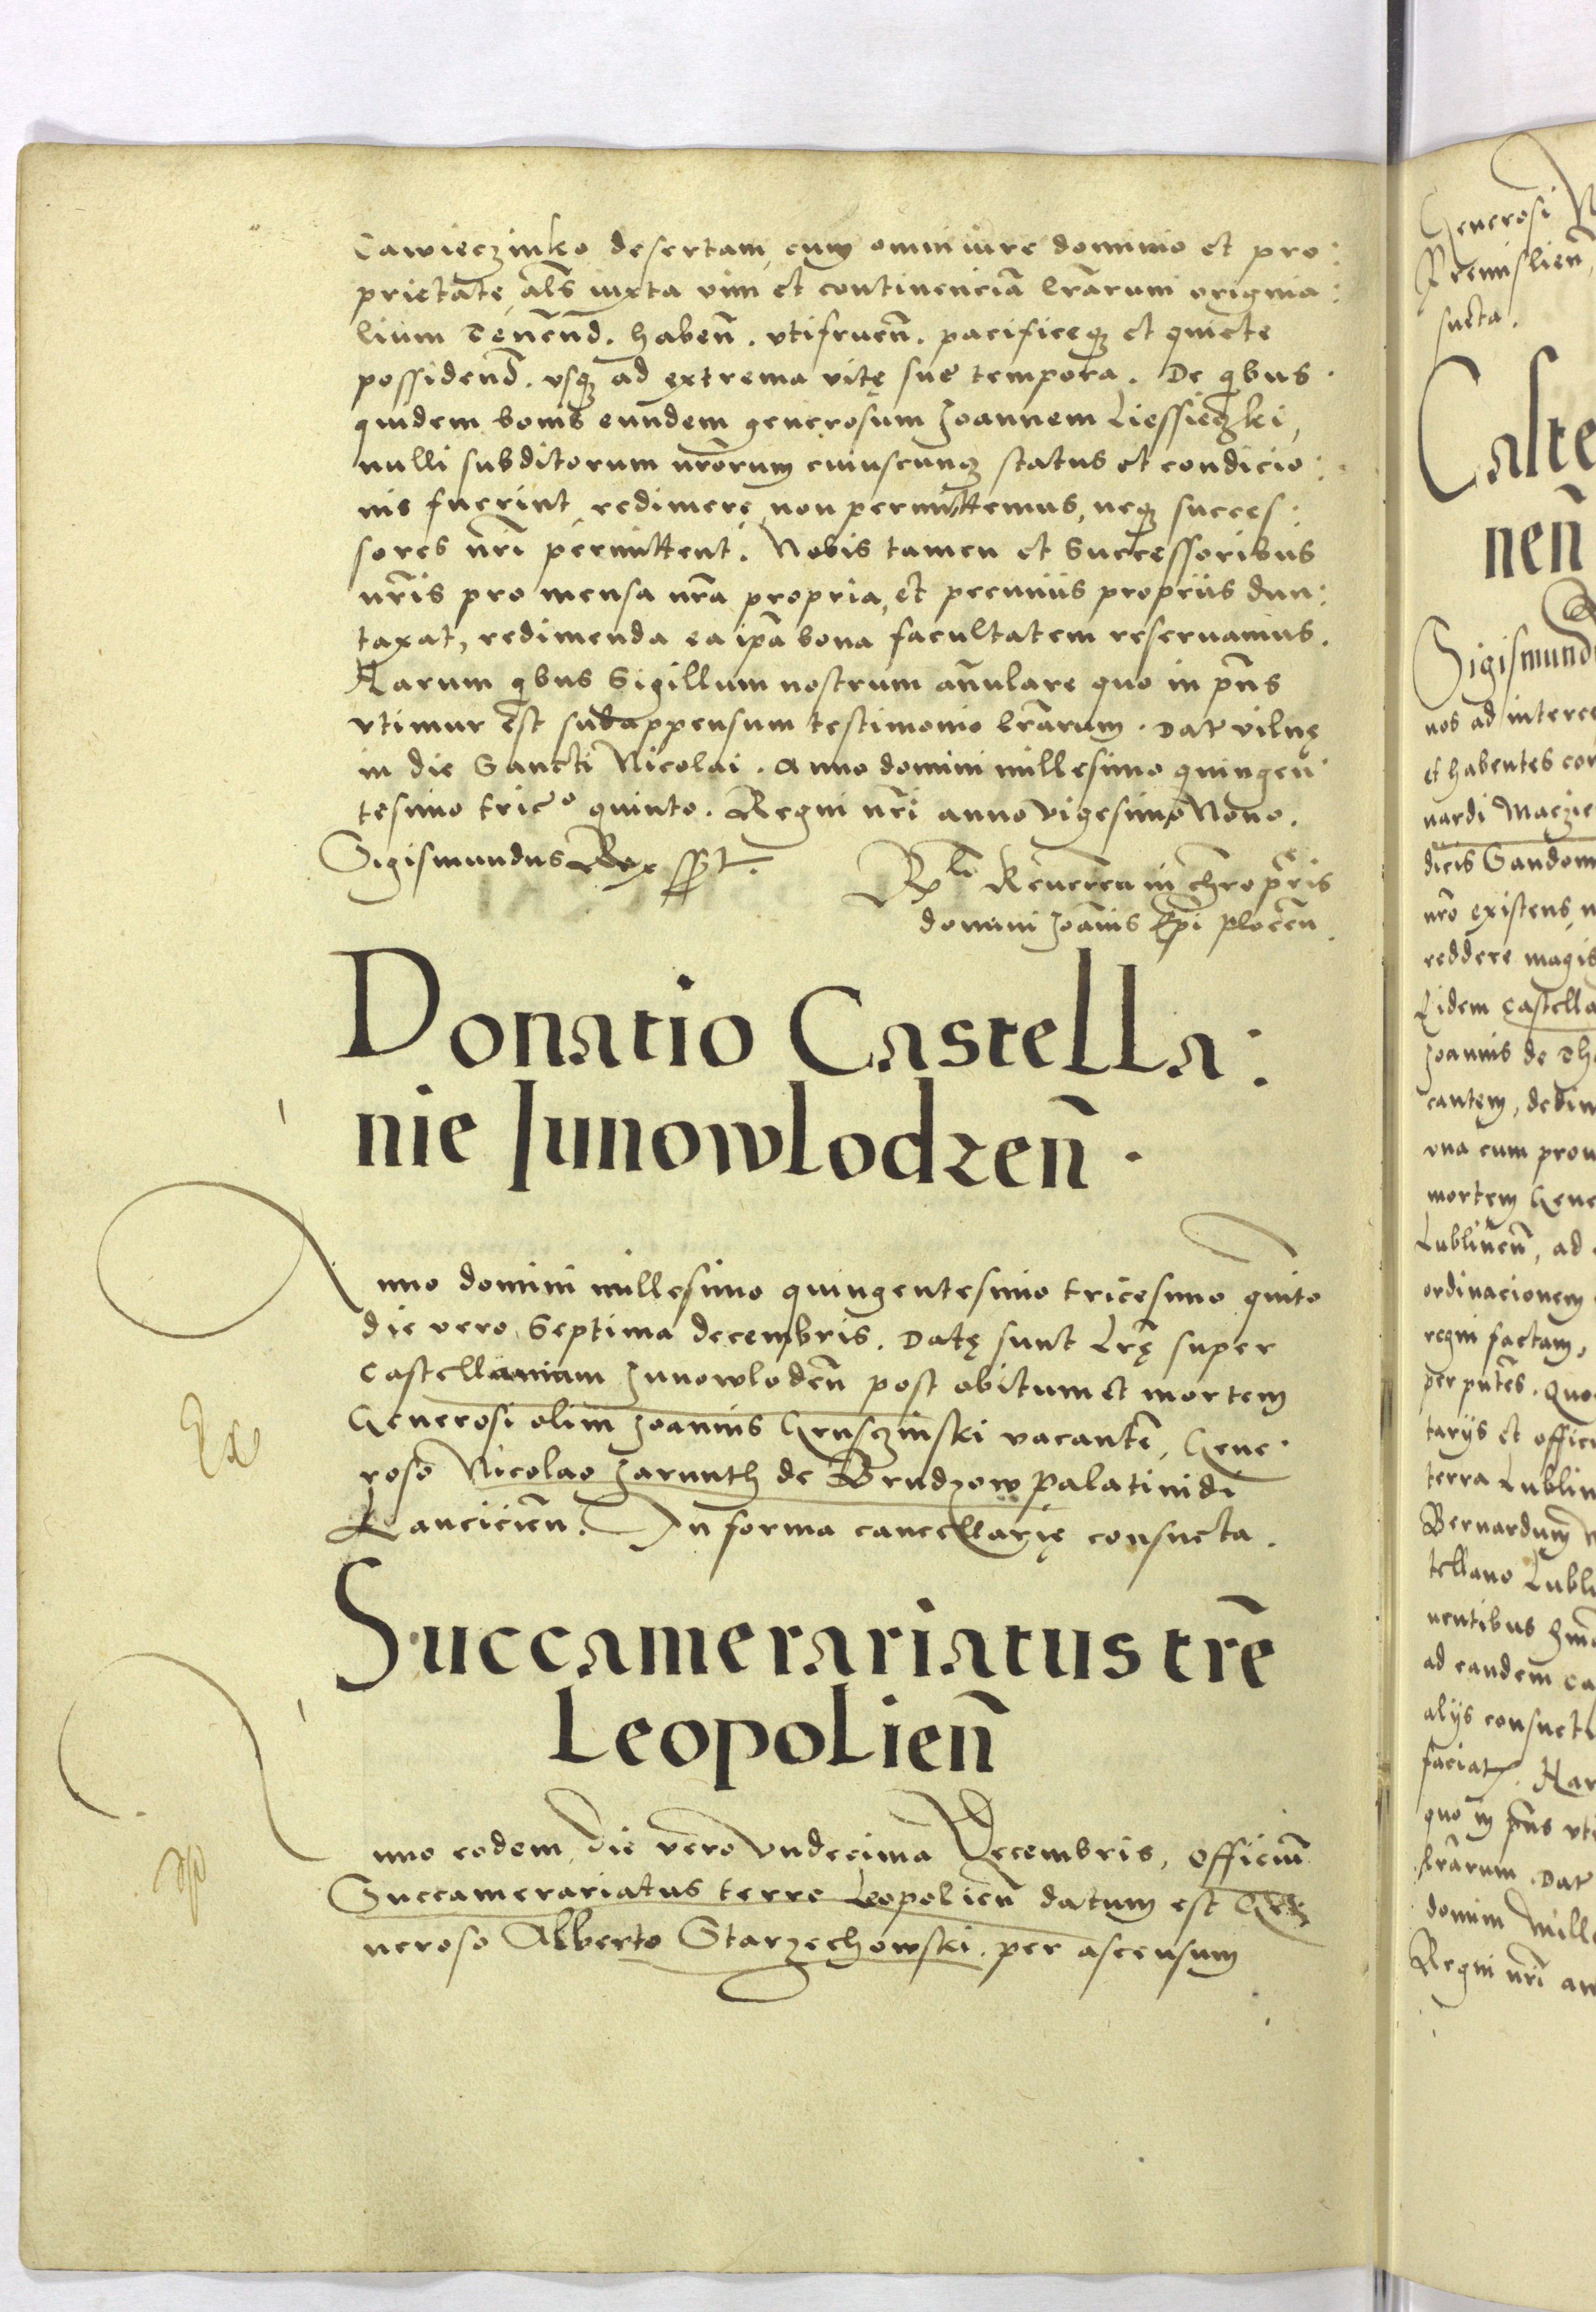 Cawieczinko desertam, cum omni iure dominio et pro:
prietate, als̄ iuxta vim et continenciā lr̄arum origina:
lium Tenēnd. habeñ. vtifrueñ. pacificeqȝ et quiete
possidend̄. vsqȝ ad extrema vitę sue tempora. De qbus
quidem bonis eundem generosum Joannem Liessieczki,
nulli subditorum nrōrum cuiuscunqȝ status et condicio:
nis fuerint, redimere, non permittemus, neqȝ succes:
sores nrī permittent. Nobis tamen et Successoribus
nrīs pro mensa nrā propria, et pecuniis propriis dun:
taxat, redimenda ea ip̄a bona facultatem reseruamus.
Harum qbus Sigillum nostrum añulare quo in pn̄s
vtimur est subappensum testimonio lr̄arum. Dat vilnę
in die Sancti Nicolai. Anno domini millesimo quingen
tesimo tricº quinto. Regni nrī anno vigesimo Nono.
Sigismundus Rex sst.
Rlō Reueren in chrō pr̄is
domini Joānis Epī plocen̄.
Donatio Castella:
nie Junowlodzen̄.
nno domini millesimo quingentesimo tricesimo quinto
die vero Septima decembris. Datę sunt Lr̄ę super
Castellaniam Junowloden̄ post obitum et mortem
Generosi olim Joannis Grusczinski vacantē, Gene
roso Nicolao Jarunth de Brudzow palatinidi
Lancicien̄. In forma cancellarię consueta.
Ex
Succamerariatus trē
Leopolien̄
nno eodem, die vero vndecima Decembris, officiū
Succamerariatus terre Leopolien̄ datum est Ge
neroso Alberto Starzechowski. per ascensum
Generosi
Premislien̄
sueta.
Caste
nen̄
Sigismund
nos ad interce
et habentes cor
nardi Maczie
dicis Sandom
nrō existens,
reddere magis
Eidem castella
Joannis de Th
cantem, dedim
vna cum prou
mortem Gene
Lublinen̄, ad
ordinacionem
regni factam.
per pn̄tes. Quo
tarijs et offici
terra Lublin
Bernardum
tellano Lubli
nentibus
ad eandem ca
alijs consuet
faciat. Har
quo in pn̄s vti
lr̄arum. Dat
domini Mille
Regni nrī an